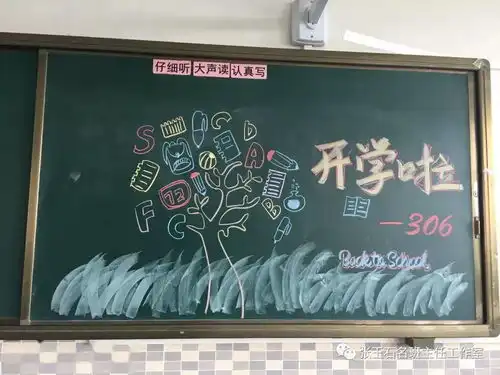 仔细听 大声读 认真写
S
C
D
A
开学啦
12
B
F
C
—306
Back to School
张玉石名班主任工作室